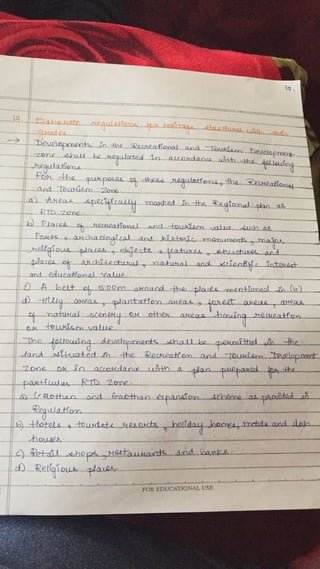 19.
19. Elaborate regulations for heritage structures with their
grades
→ Developments in the Recreational and Tourism Development
zone shall be regulated in accordance with the following
regulations
For the purposes of these regulations, the Recreational
and Tourism Zone
a) Areas specifically marked in the Regional plan as
RTD zone.
b) Places of recreational and tourism value such as
Forts, archaeological and historic monuments, major
religious places, objects, features, structures and
places of architectural, natural and scientific interest
and educational value.
c) A belt of 500m around the places mentioned in (b)
d) Hilly areas, plantation areas, forest areas, areas
of natural scenery or other areas having recreation
or tourism value.
The following developments shall be permitted in the
land situated in the Recreation and Tourism Development
zone or in accordance with a plan prepared for the
particular RTD zone.
a) Gaothan and Gaothan expansion scheme as provided in
Regulation
b) Hotels, tourists resorts, holiday homes, motels and
houses
c) Retail shops, restaurants and banks.
d) Religious places
FOR EDUCATIONAL USE